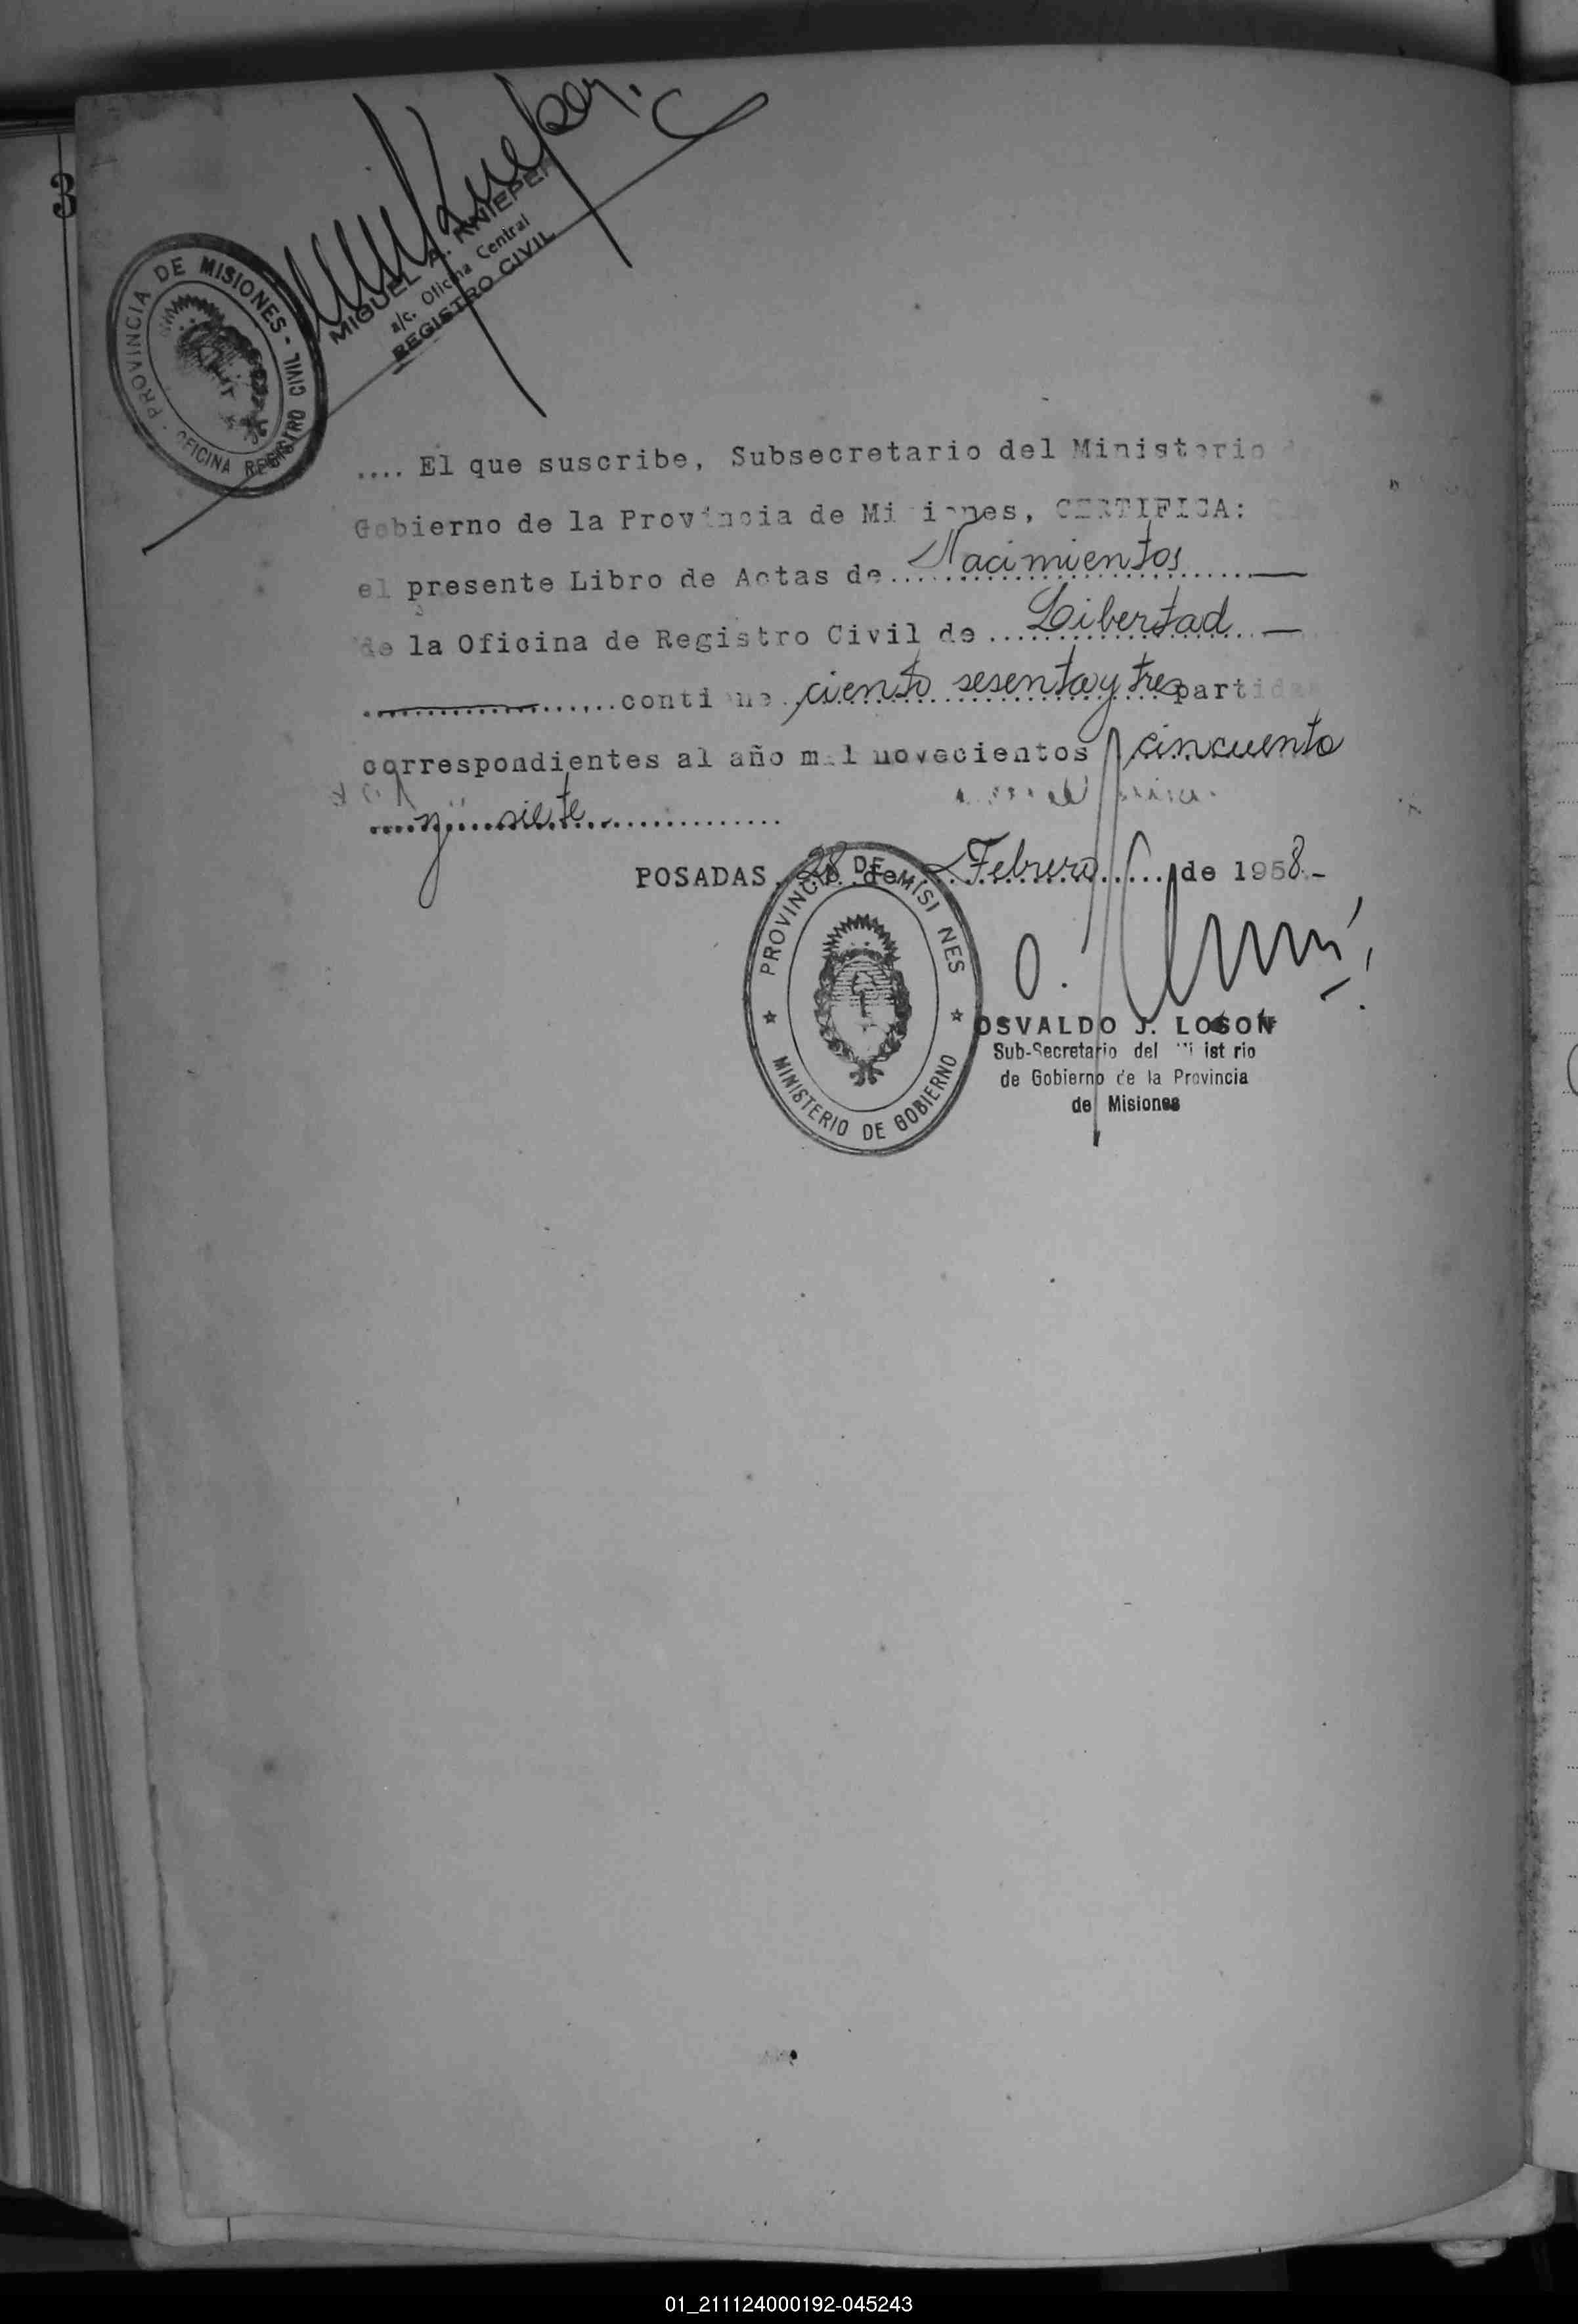 3
PROVINCIA DE MISIONES - OFICINA REGISTRO CIVIL
MIGUEL A. KNIEPER
a/c. Oficina Central
REGISTRO CIVIL
.... El que suscribe, Subsecretario del Ministerio
Gobierno de la Provincia de Misiones, CERTIFICA:
el presente Libro de Actas de Nacimientos
de la Oficina de Registro Civil de Libertad
contiene ciento sesenta y tres partidas
correspondientes al año mil novecientos cincuenta
y siete
POSADAS, 28 de Febrero de 1958.-
PROVINCIA DE MISIONES
MINISTERIO DE GOBIERNO
OSVALDO J. LOSON
Sub-Secretario del Ministerio
de Gobierno de la Provincia
de Misiones
01_211124000192-045243